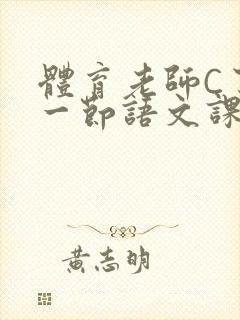 體育老師C
一節語文課
黃志明